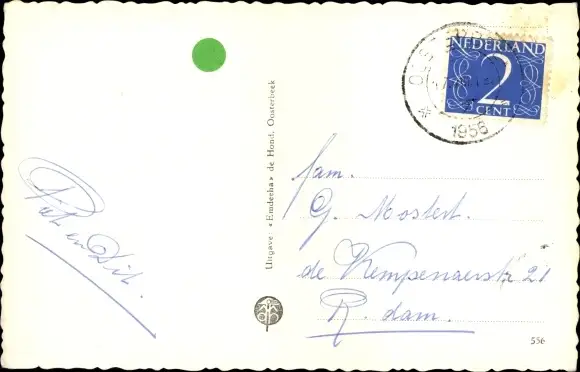 NEDERLAND
2
CENT
OOST
1956
Uitgave: «Emdeeha» de Hond, Oosterbeek
fam.
G. Mostert.
de Kempenaerstr 21
R. dam.
Piet en Dit.
556